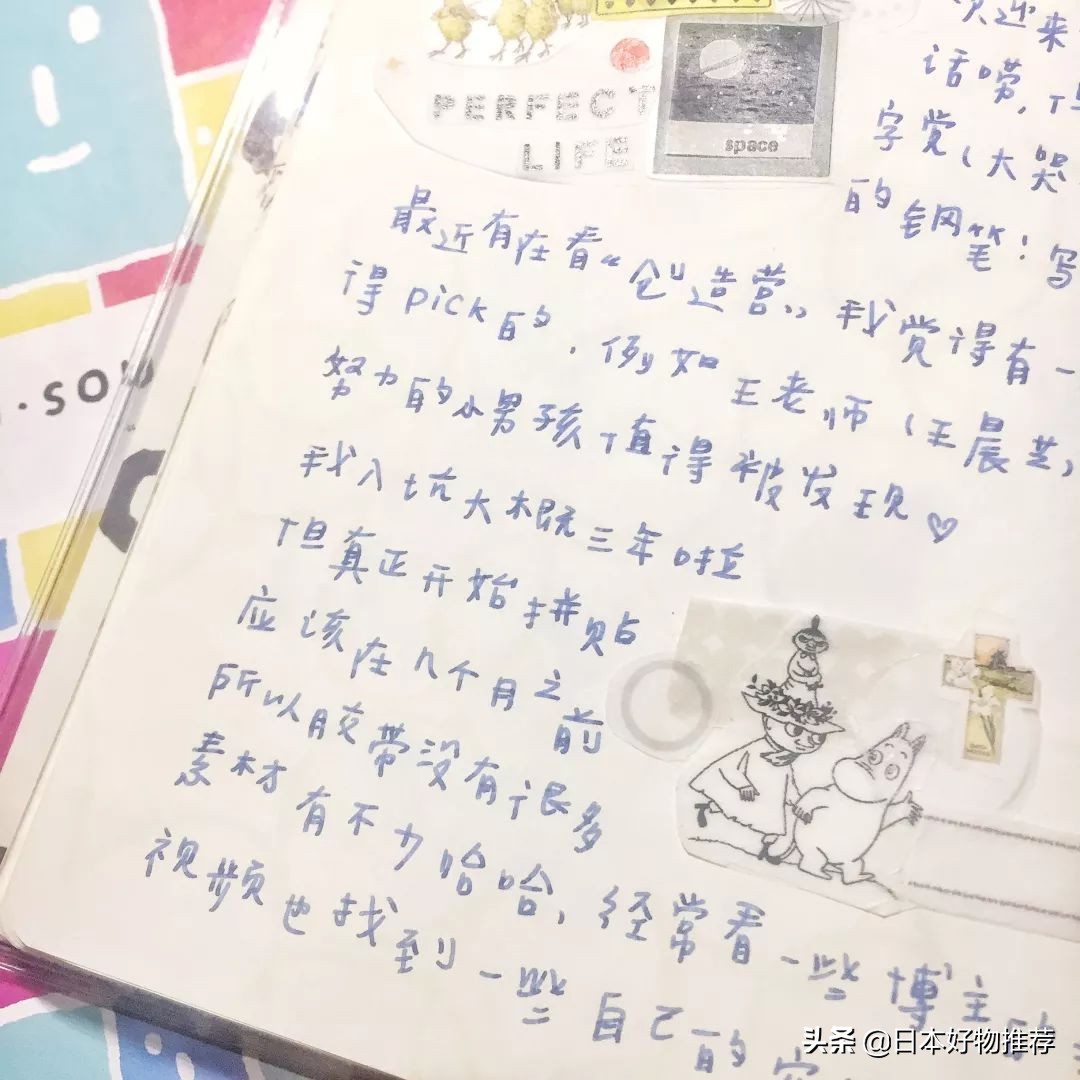 PERFECT
LIFE
space
来
话唠，
字觉（大哭
的钢笔！写
最近有在看“创造营”，我觉得有一
得pick的，例如王老师（王晨艺）
努力的小男孩值得被发现♡
我入坑大概三年啦
但真正开始拼贴
应该在几个月之前
所以胶带没有很多
素材有不少哈哈，经常看一些博主的
视频也找到一些自己的
·SOU
头条 @日本好物推荐